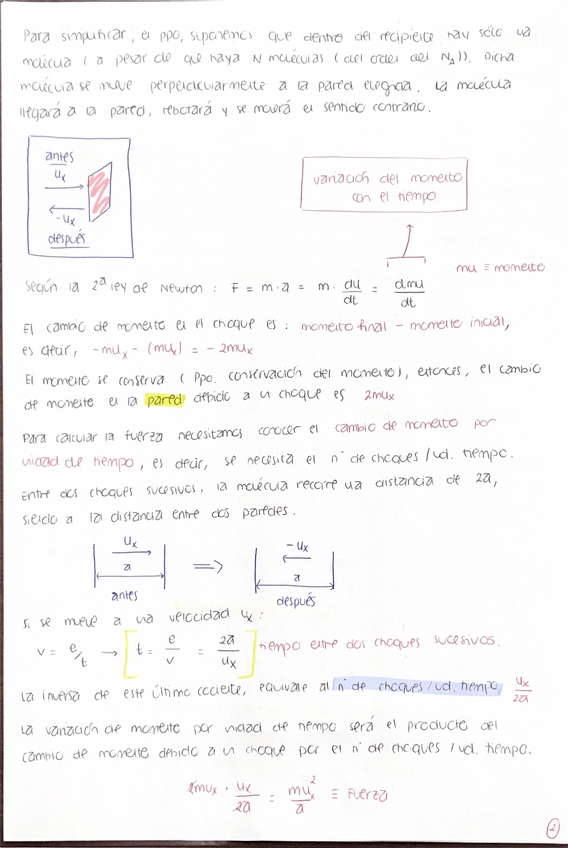 Para simplificar, el ppo, suponemos que dentro del recipiente hay sólo una
molécula (a pesar de que haya N moléculas (del orden del N_A)). Dicha
molécula se mueve perpendicularmente a la pared elegida. La molécula
llegará a la pared, rebotará y se moverá en sentido contrario.
antes
u_x
-u_x
después
variación del momento
con el tiempo
mu ≡ momento
Según la 2ª ley de Newton : F = m·a = m· du/dt = dmu/dt
El cambio de momento en el choque es : momento final - momento inicial,
es decir, -mu_x - (mu_x) = -2mu_x
El momento se conserva (Ppo. conservación del momento), entonces, el cambio
de momento en la pared debido a un choque es 2mu_x
Para calcular la fuerza necesitamos conocer el cambio de momento por
unidad de tiempo, es decir, se necesita el nº de choques/ud. tiempo.
Entre dos choques sucesivos, la molécula recorre una distancia de 2a,
siendo a la distancia entre dos paredes.
u_x
a
antes
⇒
-u_x
a
después
Si se mueve a una velocidad u_x :
v = e/t → [t = e/v = 2a/u_x] tiempo entre dos choques sucesivos.
La inversa de este último cociente, equivale al nº de choques/ud. tiempo, u_x/2a
La variación de momento por unidad de tiempo será el producto del
cambio de momento debido a un choque por el nº de choques/ud. tiempo.
2mu_x · u_x/2a = mu_x²/a ≡ Fuerza
2